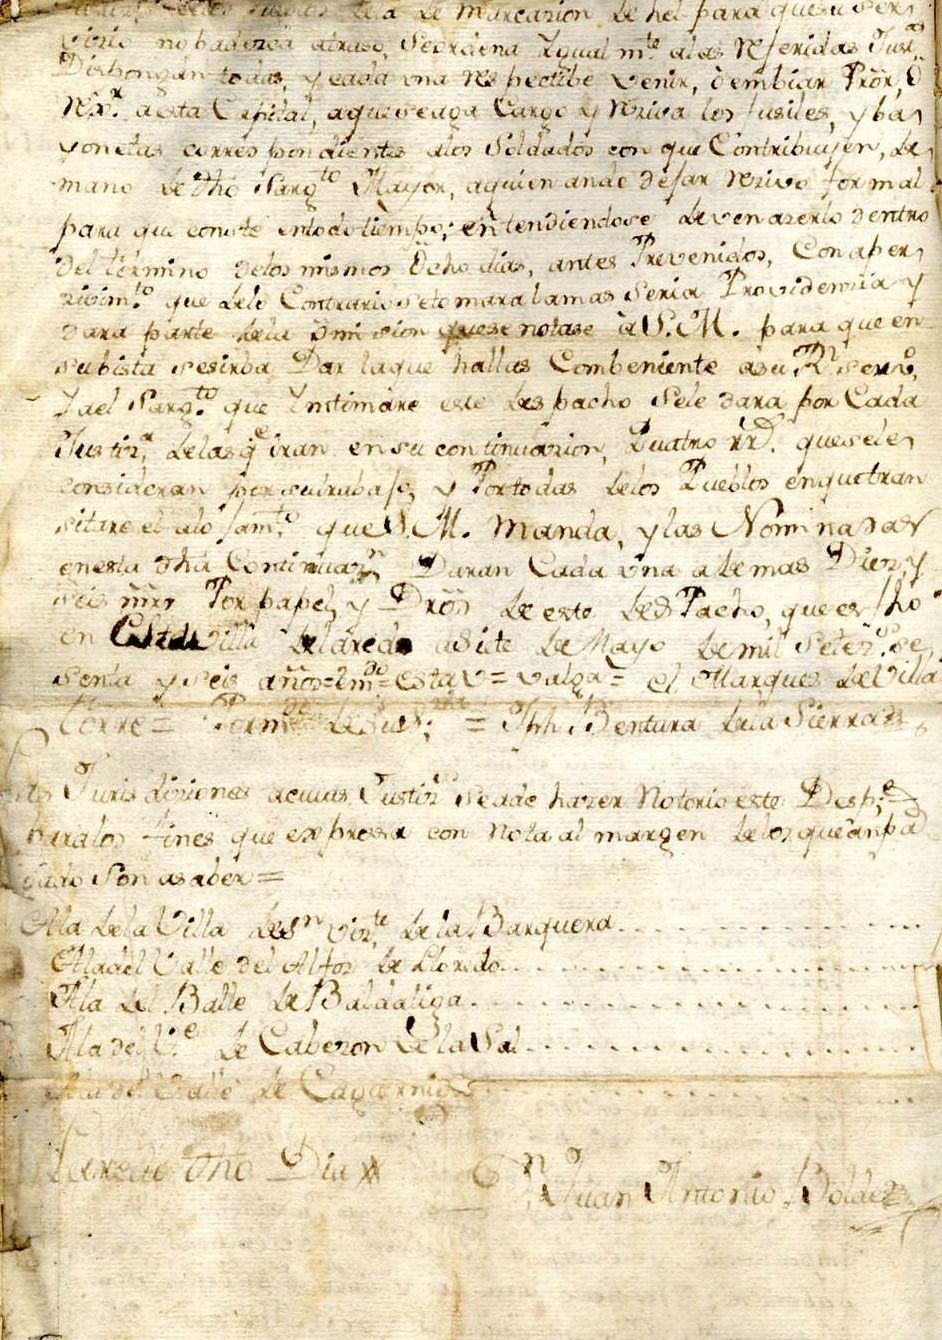 de Marcazion de hel para que su ser,
vizio no padezca atraso, se ordena Ygual mte. alas Referidas Just,as
Dispongan todas, y cada una Respectibe venir, ô embiar Pror, ô
Rexr. aesta Capital, aque se aga Cargo y Reziva los fusiles, y ba,
yonetas correspondientes alos Soldados con que Contribuyen, de
mano de dho Sargto. Mayor, aquien an de dejar Rezivo formal
para que conste entodo tiempo; entendiendose deven azerlo dentro
del término delos mismos Ôcho dias, antes Prevenidos, Conaper,
zivimto. que delo Contrario se tomara la mas seria Providencia y
dara parte dela Ômision que se notase â S. M. para que en
subista se sirba Dar la que hallas Combeniente asu Rl serv,o
Y ael Sargto. que Yntimare este despacho Sele dara por Cada
Justiza. delas qe iran en su continuazion, Quatro rrs. que sele,
consideran por su trabajo, y Por todas delos Pueblos en que tran
sitare el alojamto. que S. M. Manda, y las Nominadas
en esta dha Continuazn, Daran Cada una ademas Diez y
seis mrs Por papel, y Dros de este desPacho, que es fho
en Esta villa de Laredo asiete de Mayo de mil setezs. se,
senta y seis años = Emdo = Esta v = valga = el Marques de Villa
torre = Por mdo. de su S.ria = Jhh Bentura dela Sierra
Las Jurisdiziones acuias Justizs se ade hazer Notorio este Desp,o
para los fines que expressa con nota al margen delos que an pa
gado son asaber =
Ala dela Villa de Sn Vizte. dela Barquera
Ala del Valle del Alfoz de Lloredo
Ala del Balle de Baldaliga
Ala de de Cabezon dela Sal
Ala del Valle de Caguerniga
Laredo dho Dia
Juan Antonio